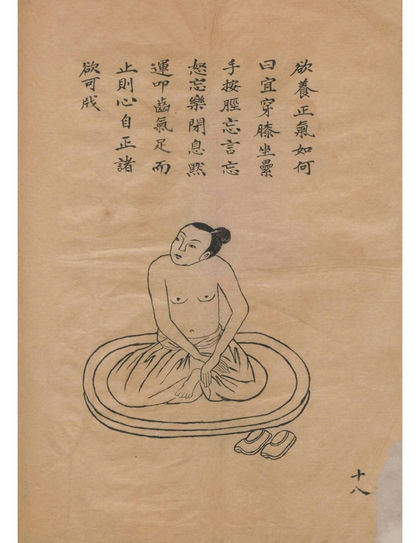 欲養正氣如何
曰宜穿膝坐纍
手按脛忘言忘
怒忘樂閉息黙
運叩齒氣足而
止則心自正諸
欲可戕
十八